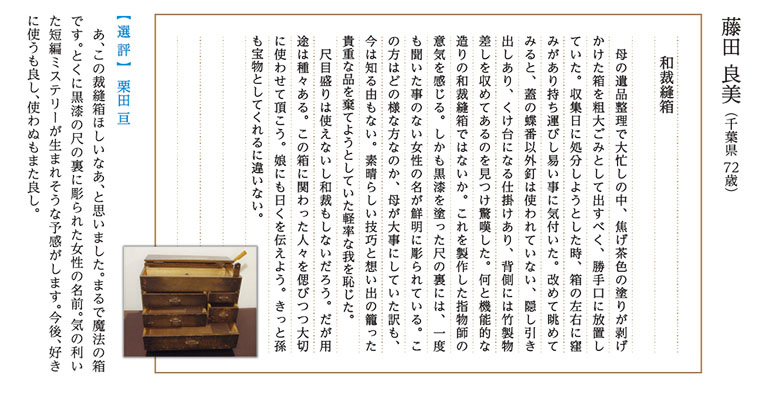 藤田 良美（千葉県 72歳）
和裁縫箱
母の遺品整理で大忙しの中、焦げ茶色の塗りが剥げ
かけた箱を粗大ごみとして出すべく、勝手口に放置し
ていた。収集日に処分しようとした時、箱の左右に窪
みがあり持ち運びし易い事に気付いた。改めて眺めて
みると、蓋の蝶番以外釘は使われていない、隠し引き
出しあり、くけ台になる仕掛けあり、背側には竹製物
差しを収めてあるのを見つけ驚嘆した。何と機能的な
造りの和裁縫箱ではないか。これを製作した指物師の
意気を感じる。しかも黒漆を塗った尺の裏には、一度
も聞いた事のない女性の名が鮮明に彫られている。こ
の方はどの様な方なのか、母が大事にしていた訳も、
今は知る由もない。素晴らしい技巧と想い出の籠った
貴重な品を棄てようとしていた軽率な我を恥じた。
尺目盛りは使えないし和裁もしないだろう。だが用
途は種々ある。この箱に関わった人々を偲びつつ大切
に使わせて頂こう。娘にも曰くを伝えよう。きっと孫
も宝物としてくれるに違いない。
【選評】 栗田 亘
あ、この裁縫箱ほしいなあ、と思いました。まるで魔法の箱
です。とくに黒漆の尺の裏に彫られた女性の名前。気の利い
た短編ミステリーが生まれそうな予感がします。今後、好き
に使うも良し、使わぬもまた良し。